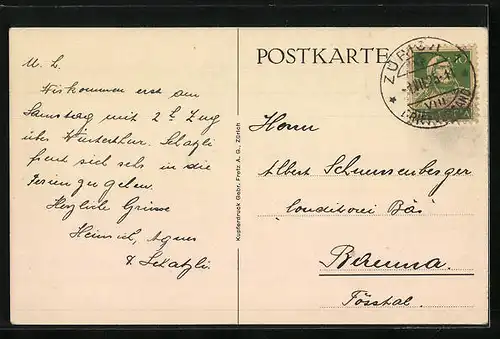 POSTKARTE
ZÜRICH
BRIEFVERSAND
VIII
10
M. L.
Wir kommen erst am
Samstag mit 2 t Zug
über Winterthur. Schatzli
freut sich sehr in die
Ferien zu gehen.
Herzliche Grüsse
Heinrich, Agnes
& Schatzli.
Kupferdruck Gebr. Fretz A. G., Zürich
Herrn
Albert Schnurrenberger
Conditorei Bär
Bauma.
Tösstal.